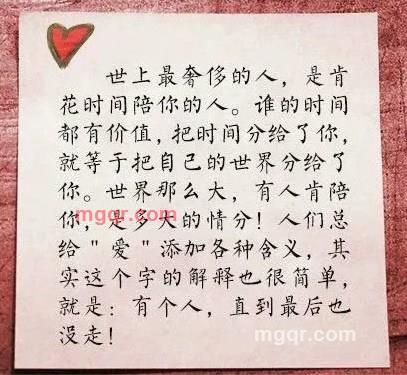 世上最奢侈的人，是肯
花时间陪你的人。谁的时间
都有价值，把时间分给了你，
就等于把自己的世界分给了
你。世界那么大，有人肯陪
你，是多大的情分！人们总
mgqr.com
给"爱"添加各种含义，其
实这个字的解释也很简单，
就是：有个人，直到最后也
没走！
mgqr.com